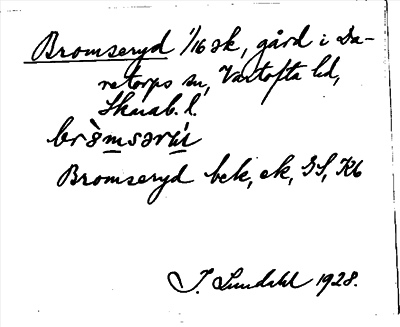 Bromseryd 1/16 sk, gård i Da-
retorps sn, Vartofta hd,
Skarab. l.
Bromseryd bek, ek, GS, Kb
I. Lundahl 1928.